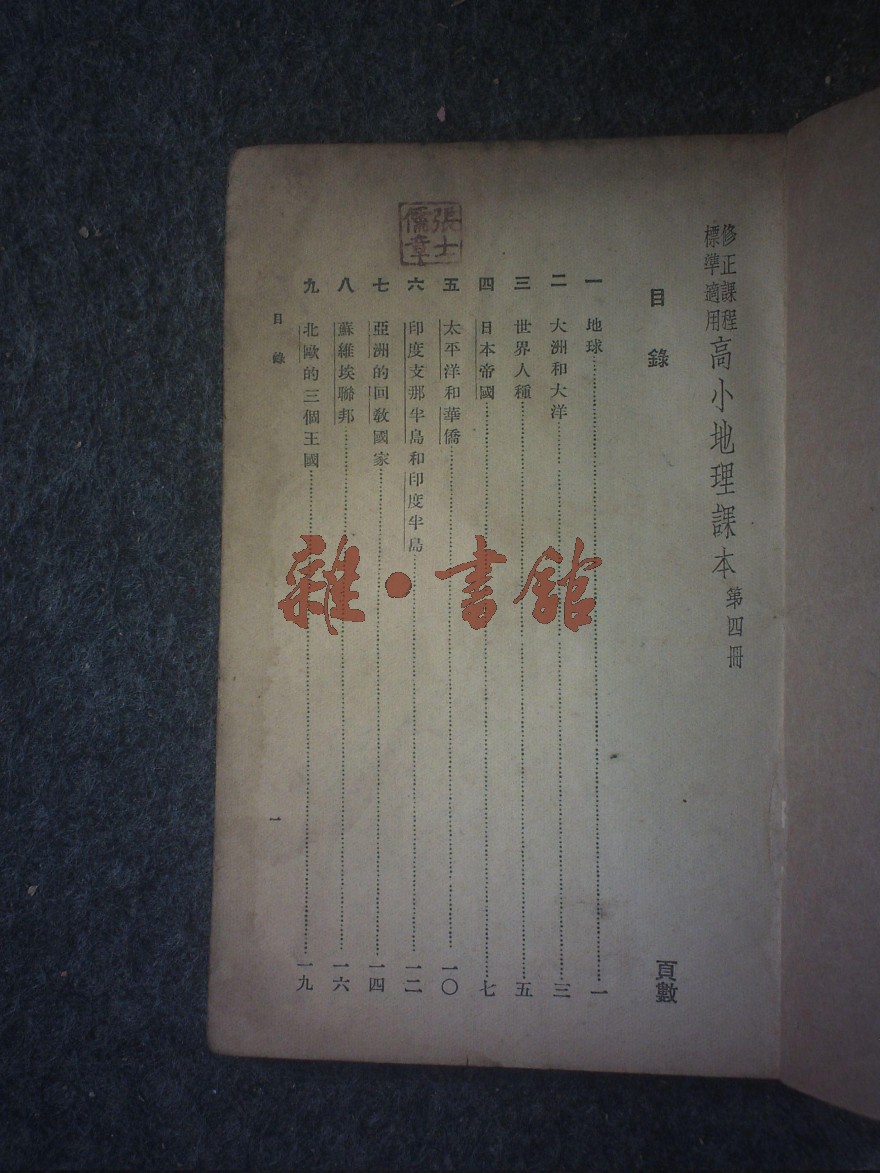 修正課程
標準適用
高小地理課本 第四冊
目錄 頁數
一 地球 一
二 大洲和大洋 三
三 世界人種 五
四 日本帝國 七
五 太平洋和華僑 一〇
六 印度支那半島和印度半島 一二
七 亞洲的回教國家 一四
八 蘇維埃聯邦 一六
九 北歐的三個王國 一九
目錄 一
張士
儒章
雜·書館